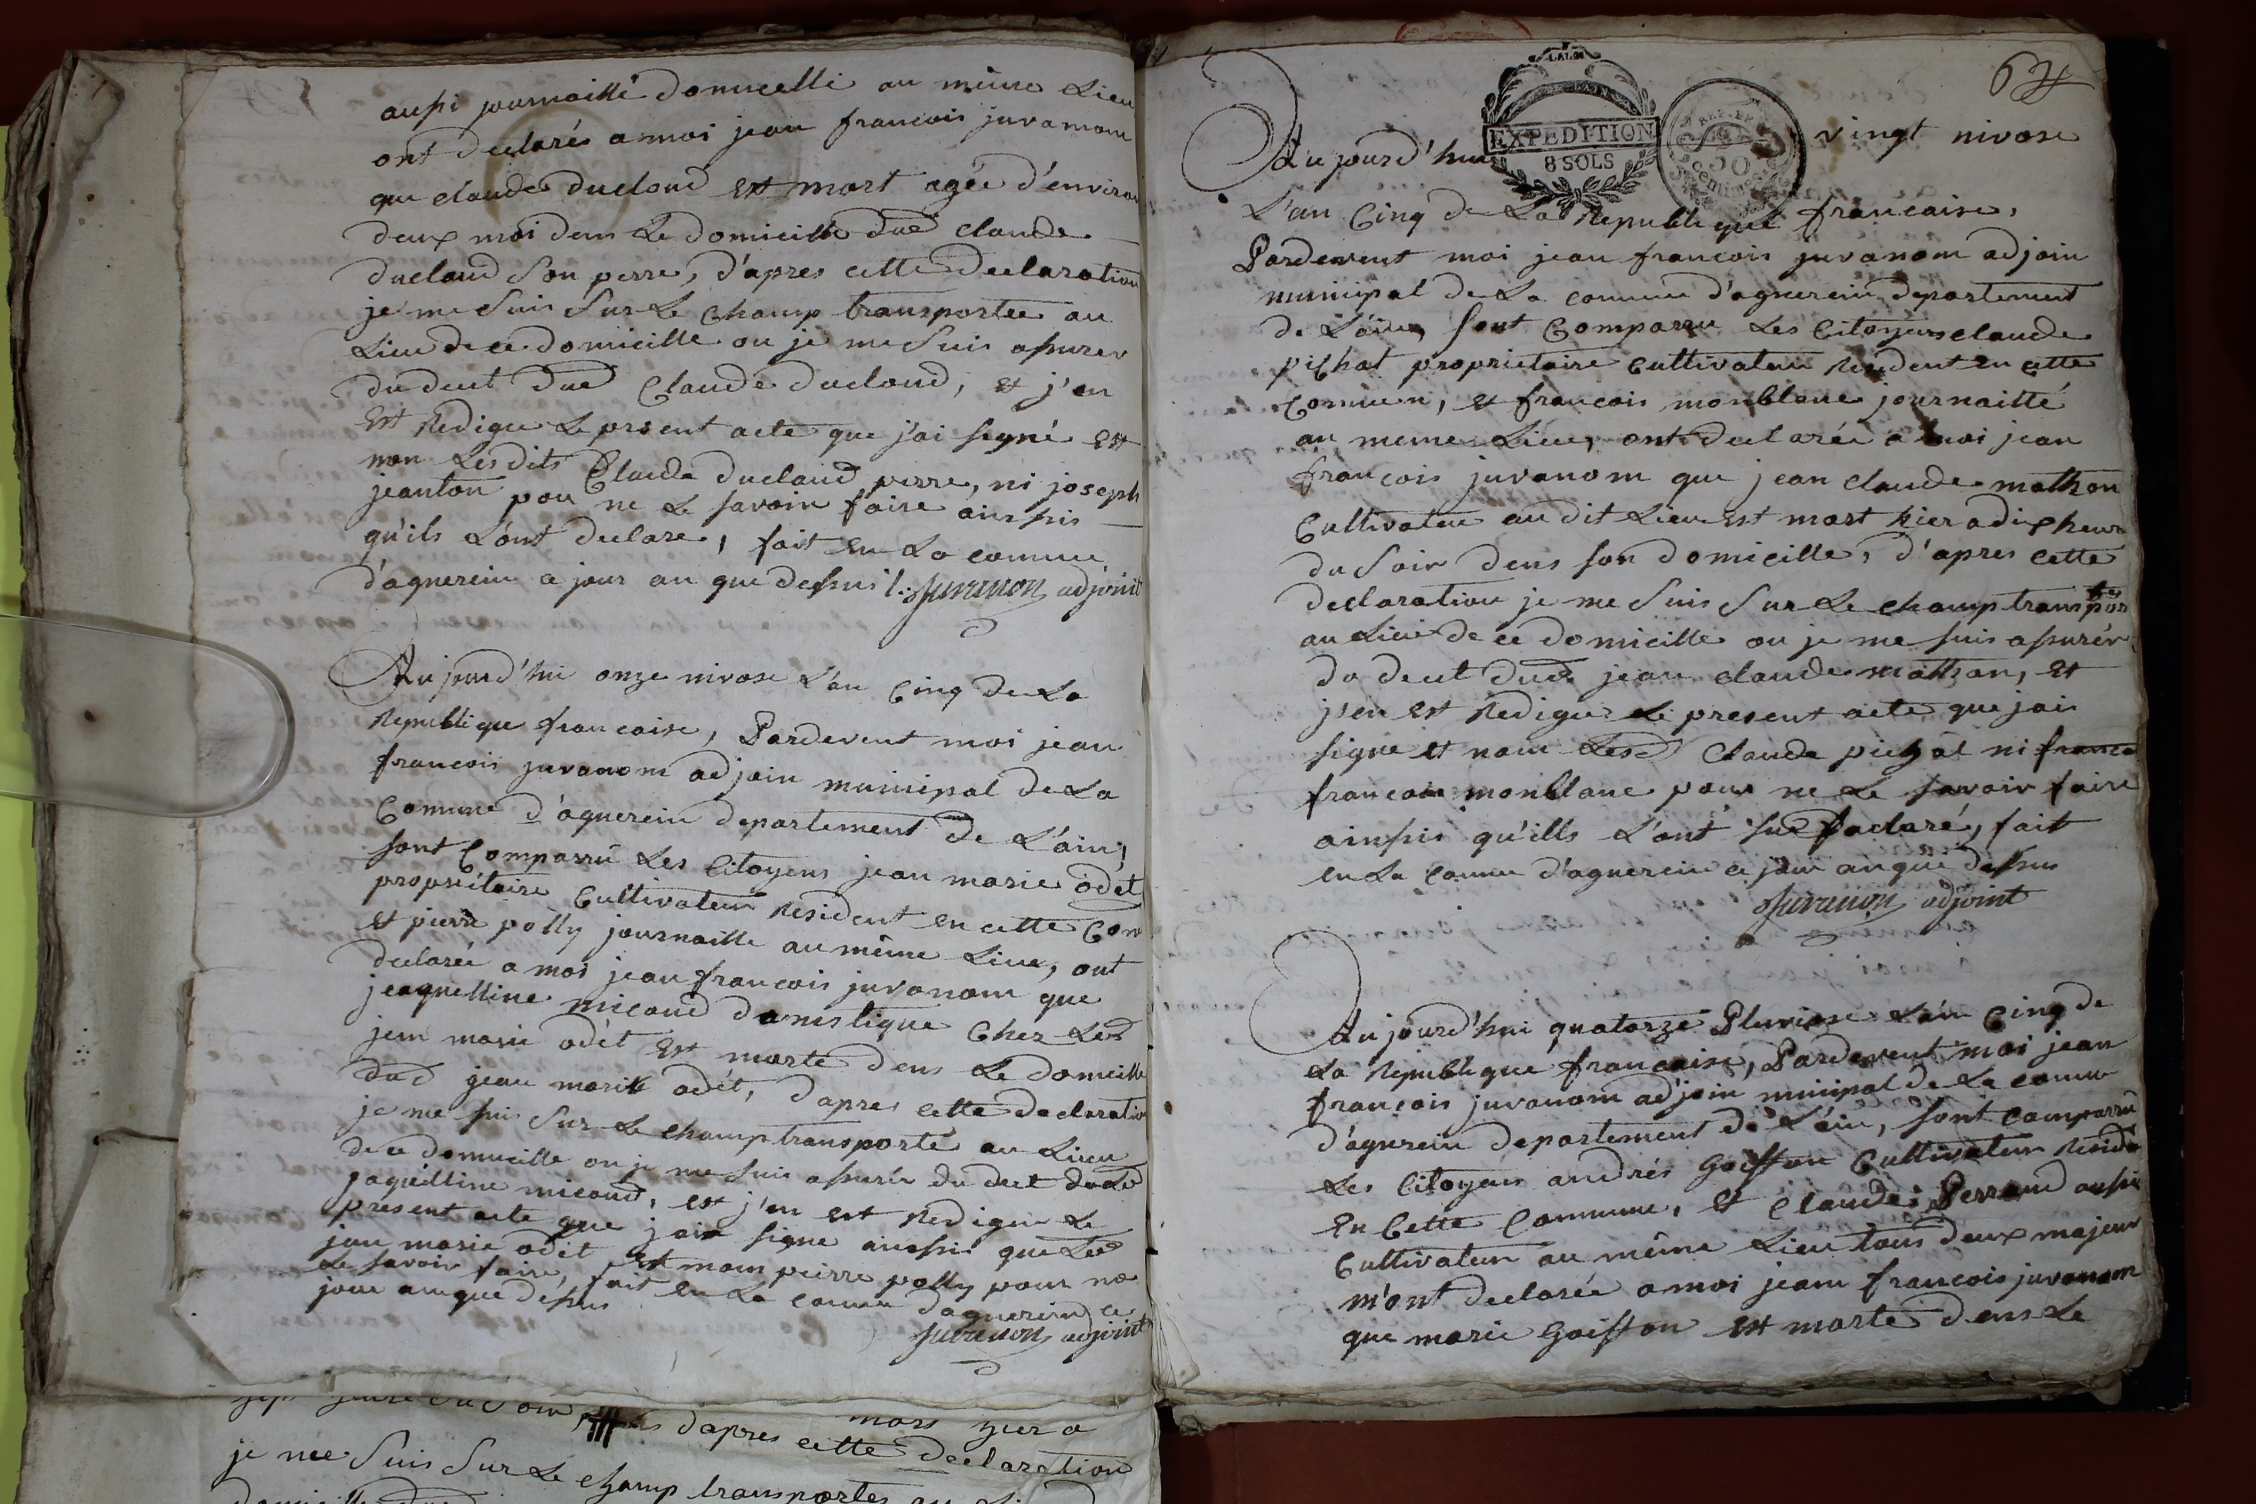 aussi journaillé domicelle au même Lieu
ont declarés a moi jean francois juvanom
que claude ducloud est mort agée d'environ
deux moi dens Le domicille dud claude
ducloud son perre, d'apres cette declaration
je me suis sur Le champ transportee au
Lieu de ce domicille ou je me suis assurer
du deut dud Claude ducloud, et j'en
Est Redigee Le present acte que j'ai signé Est
non Lesdits Claude ducloud perre, ni joseph
jeanton pour ne Le savoir faire ainssis
qu'ils L'ont declare, fait en La comune
d'aguerein a jour an que dessus juvenon adjoint
Aujourd'hui onze nivose L'an Cinq de La
Republique francaise, Pardevent moi jean
francois juvanom adjoin municipal de La
Comune d'aguerein departement de L'ain,
sont Comparrû Les Citoyens jean marie odet
proprietaire Cultivateur Resident en cette Com
et pierre polly journaille au même Lieu, ont
declarée a moi jean francois juvanom que
jeaquelline micoud domestique Chez Led
jean marie odét Est morte dens Le domicille
dud jean marie odét, dapres cette declaration
je me sui sur Le champ transporté au Lieu
de ce domicille ou je me suis assurée du deut de Lad
jaquélline micoud, est j'en est Redigee Le
present acte que j'ais signe ainssi que Led
jean marie odét et nom peirre polly pour ne
Le savoir faire, fait en La comune d'aguerein ce
jour an que dessus
juvenon adjoint
mort hier a
sept heure du soir, d'apres cette declaration
je mee suis sur Le champ transportes au
64
LALOI
EXPEDITION
8 SOLS
REP. FR
50
centimes
Aujourd'hui vingt nivose
L'an Cinq de La Republique francaise,
Pardevent moi jean francois juvanom adjoin
municipal de La comune d'aguerein departement
de L'ain, sont Comparru Les Citoyens claude
pichat proprietaire Cultivateur Resident en cette
Comune, et francois monblanc journaillé
au meme Lieu, ont declarée a moi jean
françois juvanom que jean claude mathon
Cultivateur au dit Lieu est mort hier a dix heure
du soir dens son domicille, d'apres cette
declaration je me suis sur Le champ transportes
au Lieu de ce domicille ou je me suis assurér
du deut dud jean claude mathon, Et
j'en est Redigee Le present acte que jais
signe et nom Lesd Claude pichat ni franco
francois monblanc pour ne Le savoir faire
ainssis qu'ills L'ont declaré, fait
en La comune d'aguerein ce jour an que dessus
juvenon adjoint
Aujourd'hui quatorze Pluviose L'an Cinq de
La Republique francaise, Pardevent moi jean
françois juvanom adjoin municipal de La comune
d'aguerein departement de L'ain, sont comparru
Les Citoyens andrés Goiffon Cultivateur Reside
En Cette Commune, Et Claude Perraud aussi
Cultivateur au même Lieu tous deux majeur
m'ont declarée a moi jeam francois juvanom
que marie Goiffon est morte dens Le